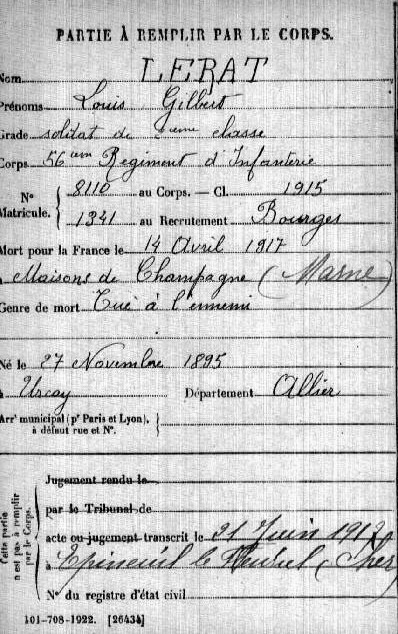 PARTIE À REMPLIR PAR LE CORPS.
Nom LERAT
Prénoms Louis Gilbert
Grade soldat de 2eme classe
Corps 56eme Regiment d'Infanterie
N° Matricule. { 8110 au Corps. — Cl. 1915
1341 au Recrutement Bourges
Mort pour la France le 14 Avril 1917
à Maisons de Champagne (Marne)
Genre de mort Tué à l'ennemi
Né le 27 Novembre 1895
à Urcay Département Allier
Arrt municipal (pr Paris et Lyon), à défaut rue et N°. }
Cette partie n'est pas à remplir par le Corps.
Jugement rendu le
par le Tribunal de
acte ou jugement transcrit le 21 Juin 1917
à Epineuil le Fleuriel (Cher)
N° du registre d'état civil
101-708-1922. [26434]